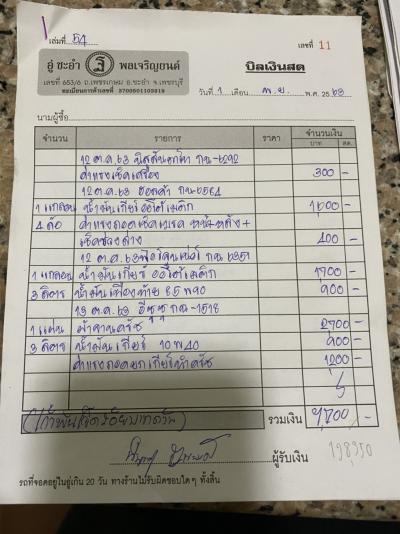 เล่มที่ 54
เลขที่ 11
อู่ ชะอำ พอเจริญยนต์
บิลเงินสด
เลขที่ 653/6 ถ.เพชรเกษม อ.ชะอำ จ.เพชรบุรี
ทะเบียนการค้าเลขที่
วันที่ 1 เดือน พ.ย. พ.ศ. 2563
นามผู้ซื้อ
จำนวน รายการ ราคา จำนวนเงิน
บาท สต.
12 ต.ค. 63
ค่าแรงเช็คเครื่อง 300 -
12 ต.ค. 63
1 แกลลอน น้ำมันเกียร์ออโตเมติก -
4 ล้อ ค่าแรงถอดเช็คเบรค หน้า+หลัง+
เช็คช่วงล่าง 400 -
12 ต.ค. 63
1 แกลลอน น้ำมันเกียร์ออโตเมติก 1700 -
3 ลิตร น้ำมันเฟืองท้าย 85 w 90 900 -
13 ต.ค. 63 อีซูซุ กฉ-1518
1 แผ่น ผ้าคานครัช 2700 -
3 ลิตร น้ำมันเกียร์ 10 w 40 900 -
1200 -
(เก้าพันเจ็ดร้อยบาทถ้วน) รวมเงิน 9,700 -
ผู้รับเงิน
รถที่จอดอยู่ในอู่เกิน 20 วัน ทางร้านไม่รับผิดชอบใดๆ ทั้งสิ้น